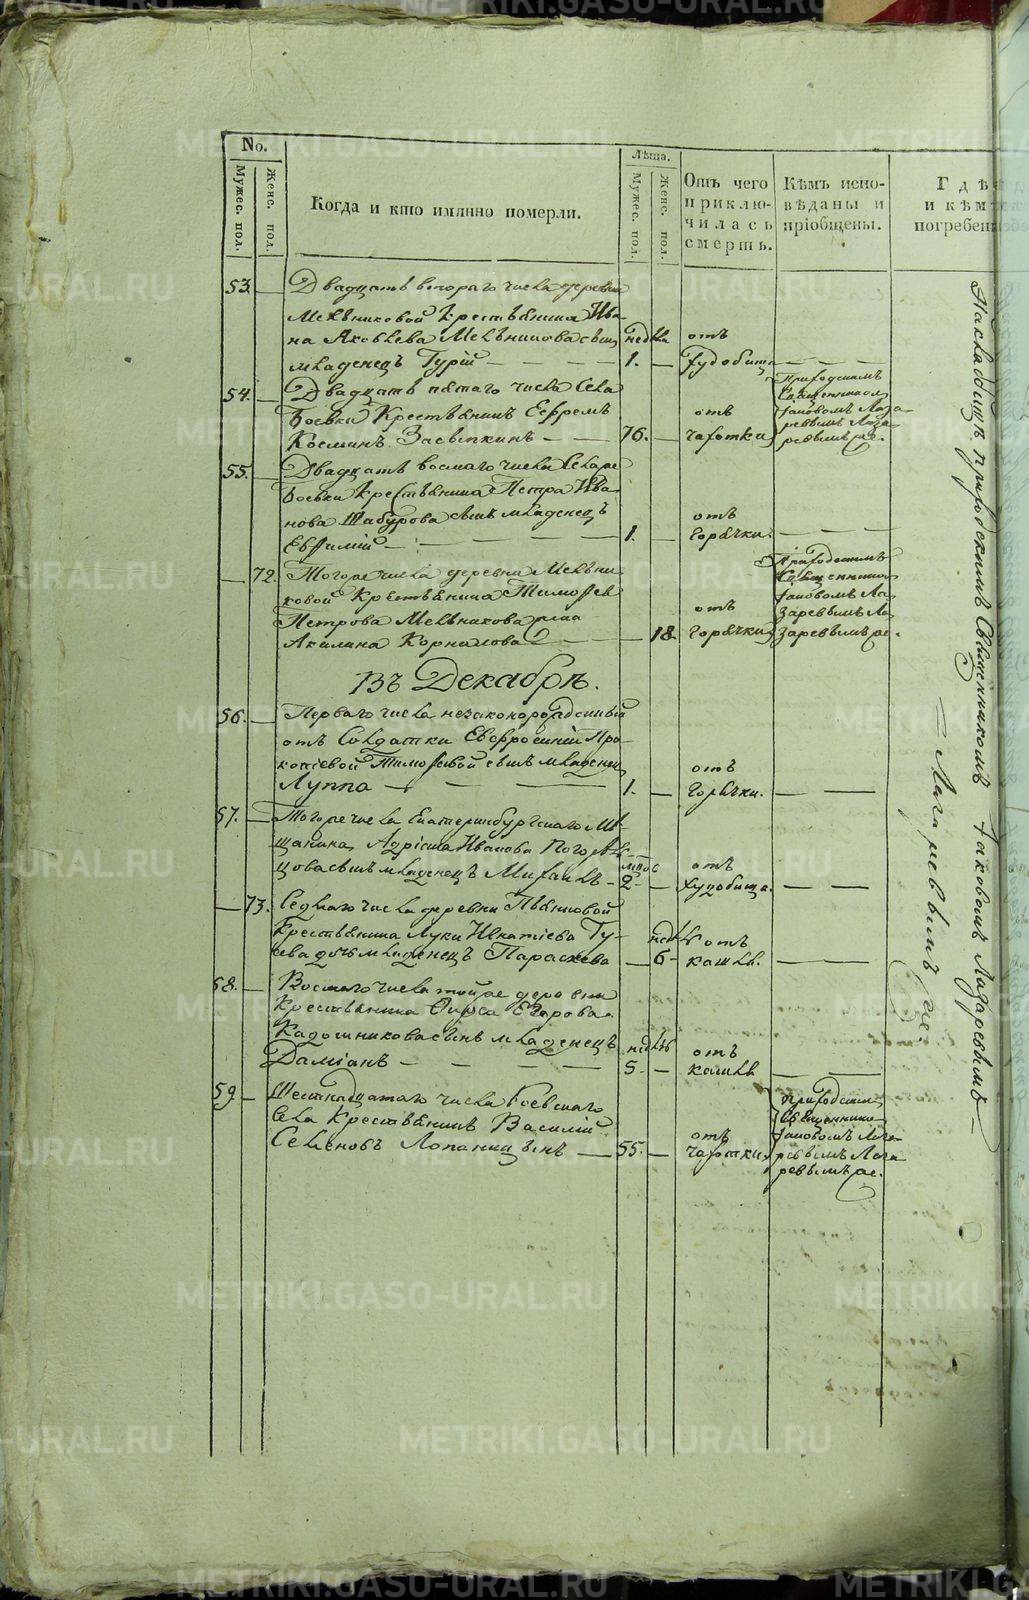 No.
Мужес. пол.
Женс. пол.
Когда и кто имянно померли.
Лѣта.
Мужес. пол.
Женс. пол.
Отъ чего
приклю-
чилась
смерть.
Кѣмъ испо-
вѣданы и
пріобщены.
Гдѣ
и кѣмъ
погребен
53. Двадцать втораго числа деревни
Мельниковой крестьянина Ива-
на Яковлева Мельникова сынъ
младенецъ Гурій
недѣл
1.
отъ
худобищ
54. Двадцать пятаго числа села
Боевки крестьянинъ Ефремъ
Косминъ Засыпкинъ
76.
отъ
чахотки
Приходскимъ
Священником
Іаковомъ Лаза-
ревымъ Лаза-
ревымъ же.
55. Двадцать восмаго числа села же
Боевки крестьянина Петра Ива-
нова Шабурова сынъ младенецъ
Евфимій
1.
отъ
горячки.
72. Тогоже числа деревни Мельни-
ковой крестьянина Тимофея
Петрова Мельникова жена
Акилина Корнилова
18.
отъ
горячки
Приходскимъ
Священником
Іаковомъ Ла-
заревымъ Ла-
заревымъ же.
Въ Декабрѣ.
56. Перваго числа незаконорожденный
отъ солдатки Евфросиніи Про-
копіевой Тимофеевой сынъ младенец
Луппа
1.
отъ
горячки.
57. Тогоже числа Екатеринбургскаго Мѣ-
щанина Адріана Иванова
сынъ младенецъ Михаилъ
2
отъ
худобища.
73. Седмаго числа деревни Пьянковой
крестьянина Луки Игнатіева Гу-
сева дочь младенецъ Параскева
недѣль
6
отъ
кашля.
58. Восмаго числа тойже деревни
крестьянина Ѳирса Егорова
Кадошникова сынъ младенецъ
Даміанъ
недѣль
5.
отъ
кашля
59. Шестнадцатаго числа Боевскаго
села крестьянинъ Василій
Семеновъ Лопаницынъ
55.
отъ
чахотки
Приходским
Священнико
Іаковомъ Лаза-
ревымъ Лаза-
ревымъ же.
На кладбищѣ приходскимъ Священникомъ Іаковомъ Лазаревымъ
Лазаревымъ же
METRIKI.GASO-URAL.RU